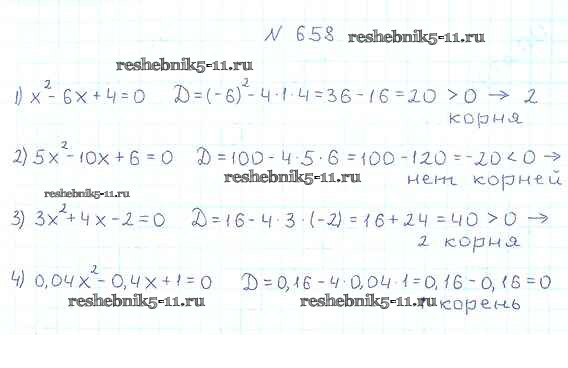 N 658 reshebnik5-11.ru
reshebnik5-11.ru
1) x² - 6x + 4 = 0 D = (-6)² - 4·1·4 = 36 - 16 = 20 > 0 → 2
корня
2) 5x² - 10x + 6 = 0 D = 100 - 4·5·6 = 100 - 120 = -20 < 0 →
reshebnik5-11.ru нет корней
reshebnik5-11.ru
3) 3x² + 4x - 2 = 0 D = 16 - 4·3·(-2) = 16 + 24 = 40 > 0 →
2 корня
4) 0,04x² - 0,4x + 1 = 0 D = 0,16 - 4·0,04·1 = 0,16 - 0,16 = 0
reshebnik5-11.ru reshebnik5-11.ru 1 корень